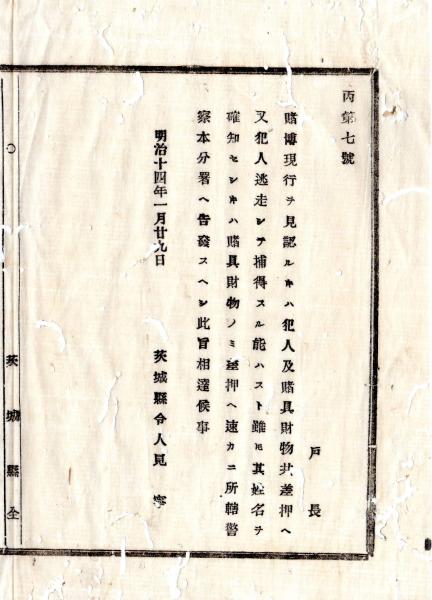 丙第七號
戸長
賭博現行ヲ見認ルキハ犯人及賭具財物共差押ヘ
又犯人逃走シテ捕得スル能ハスト雖𪜈其姓名ヲ
確知セシキハ賭具財物ノミ差押ヘ速カニ所轄警
察本分署ヘ告發スヘシ此旨相達候事
明治十四年一月廿九日
茨城縣令人見寧
茨城縣令